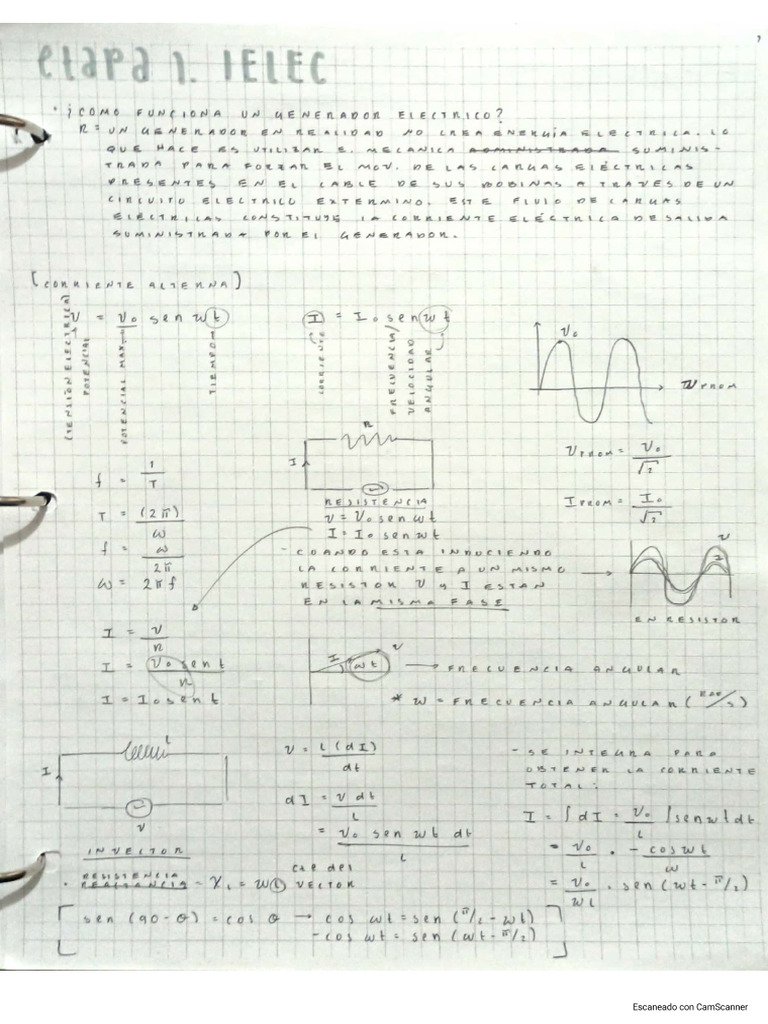 etapa 1. IELEC
• ¿COMO FUNCIONA UN GENERADOR ELECTRICO?
R = UN GENERADOR EN REALIDAD NO CREA ENERGÍA ELECTRICA. LO
QUE HACE ES UTILIZAR E. MECANICA ADMINISTRADA SUMINIS-
TRADA PARA FORZAR EL MOV. DE LAS CARGAS ELÉCTRICAS
PRESENTES EN EL CABLE DE SUS BOBINAS A TRAVES DE UN
CIRCUITO ELECTRICO EXTERMINO. ESTE FLUIO DE CARGAS
ELÉCTRICAS CONSTITUYE LA CORRIENTE ELÉCTRICA DE SALIDA
SUMINISTRADA POR EL GENERADOR.
[CORRIENTE ALTERNA]
V = V₀ sen wt
(TENSIÓN ELECTRICA)
POTENCIAL
POTENCIAL MAX.
TIEMPO
I = I₀ sen wt
CORRIENTE
FRECUENCIA/
VELOCIDAD
ANGULAR
V₀
V PROM
V PROM = V₀/√2
I PROM = I₀/√2
f = 1/T
T = (2π)/ω
f = ω/2π
ω = 2πf
R
I
RESISTENCIA
V = V₀ sen wt
I = I₀ sen wt
- CUANDO ESTA INDUCIENDO
LA CORRIENTE A UN MISMO
RESISTOR V y I ESTAN
EN LA MISMA FASE
V
I
EN RESISTOR
I = V/R
I = V₀ sen t/R
I = I₀ sen t
I
V
wt → FRECUENCIA ANGULAR
* W = FRECUENCIA ANGULAR (RAD/s)
L
I
V
INVECTOR
V = L(dI)/dt
dI = V dt/L
= V₀ sen wt dt/L
- SE INTEGRA PARA
OBTENER LA CORRIENTE
TOTAL:
I = ∫dI = V₀/L ∫sen wt dt
= V₀/L · -cos wt/w
= V₀/wL · sen (wt - π/2)
RESISTENCIA
• REACTANCIA - X L = WL
cte del
VECTOR
[sen (90 - θ) = cos θ → cos wt = sen (π/2 - wt)
-cos wt = sen (wt - π/2)]
Escaneado con CamScanner